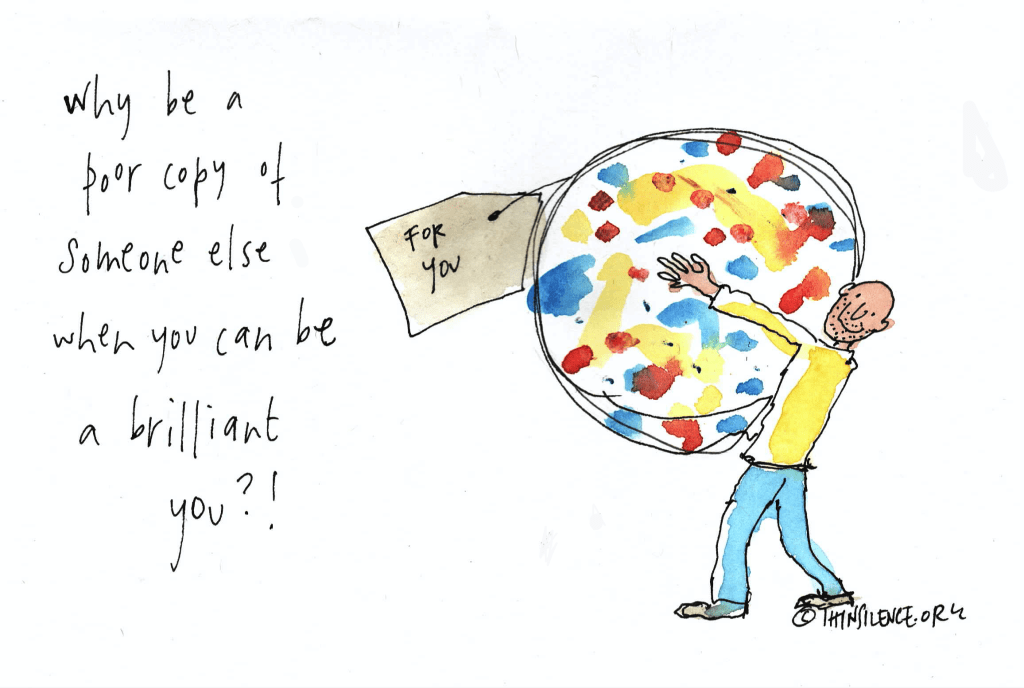 Why be a
poor copy of
someone else
when you can be
a brilliant
you?!
FOR
YOU
© THINSILENCE.ORG